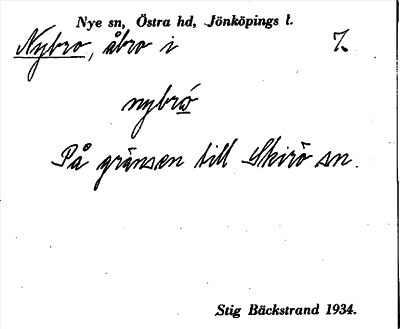 Nye sn, Östra hd, Jönköpings l.
Nybro, åbro i 7.
nybró
På gränsen till Skirö sn.
Stig Bäckstrand 1934.